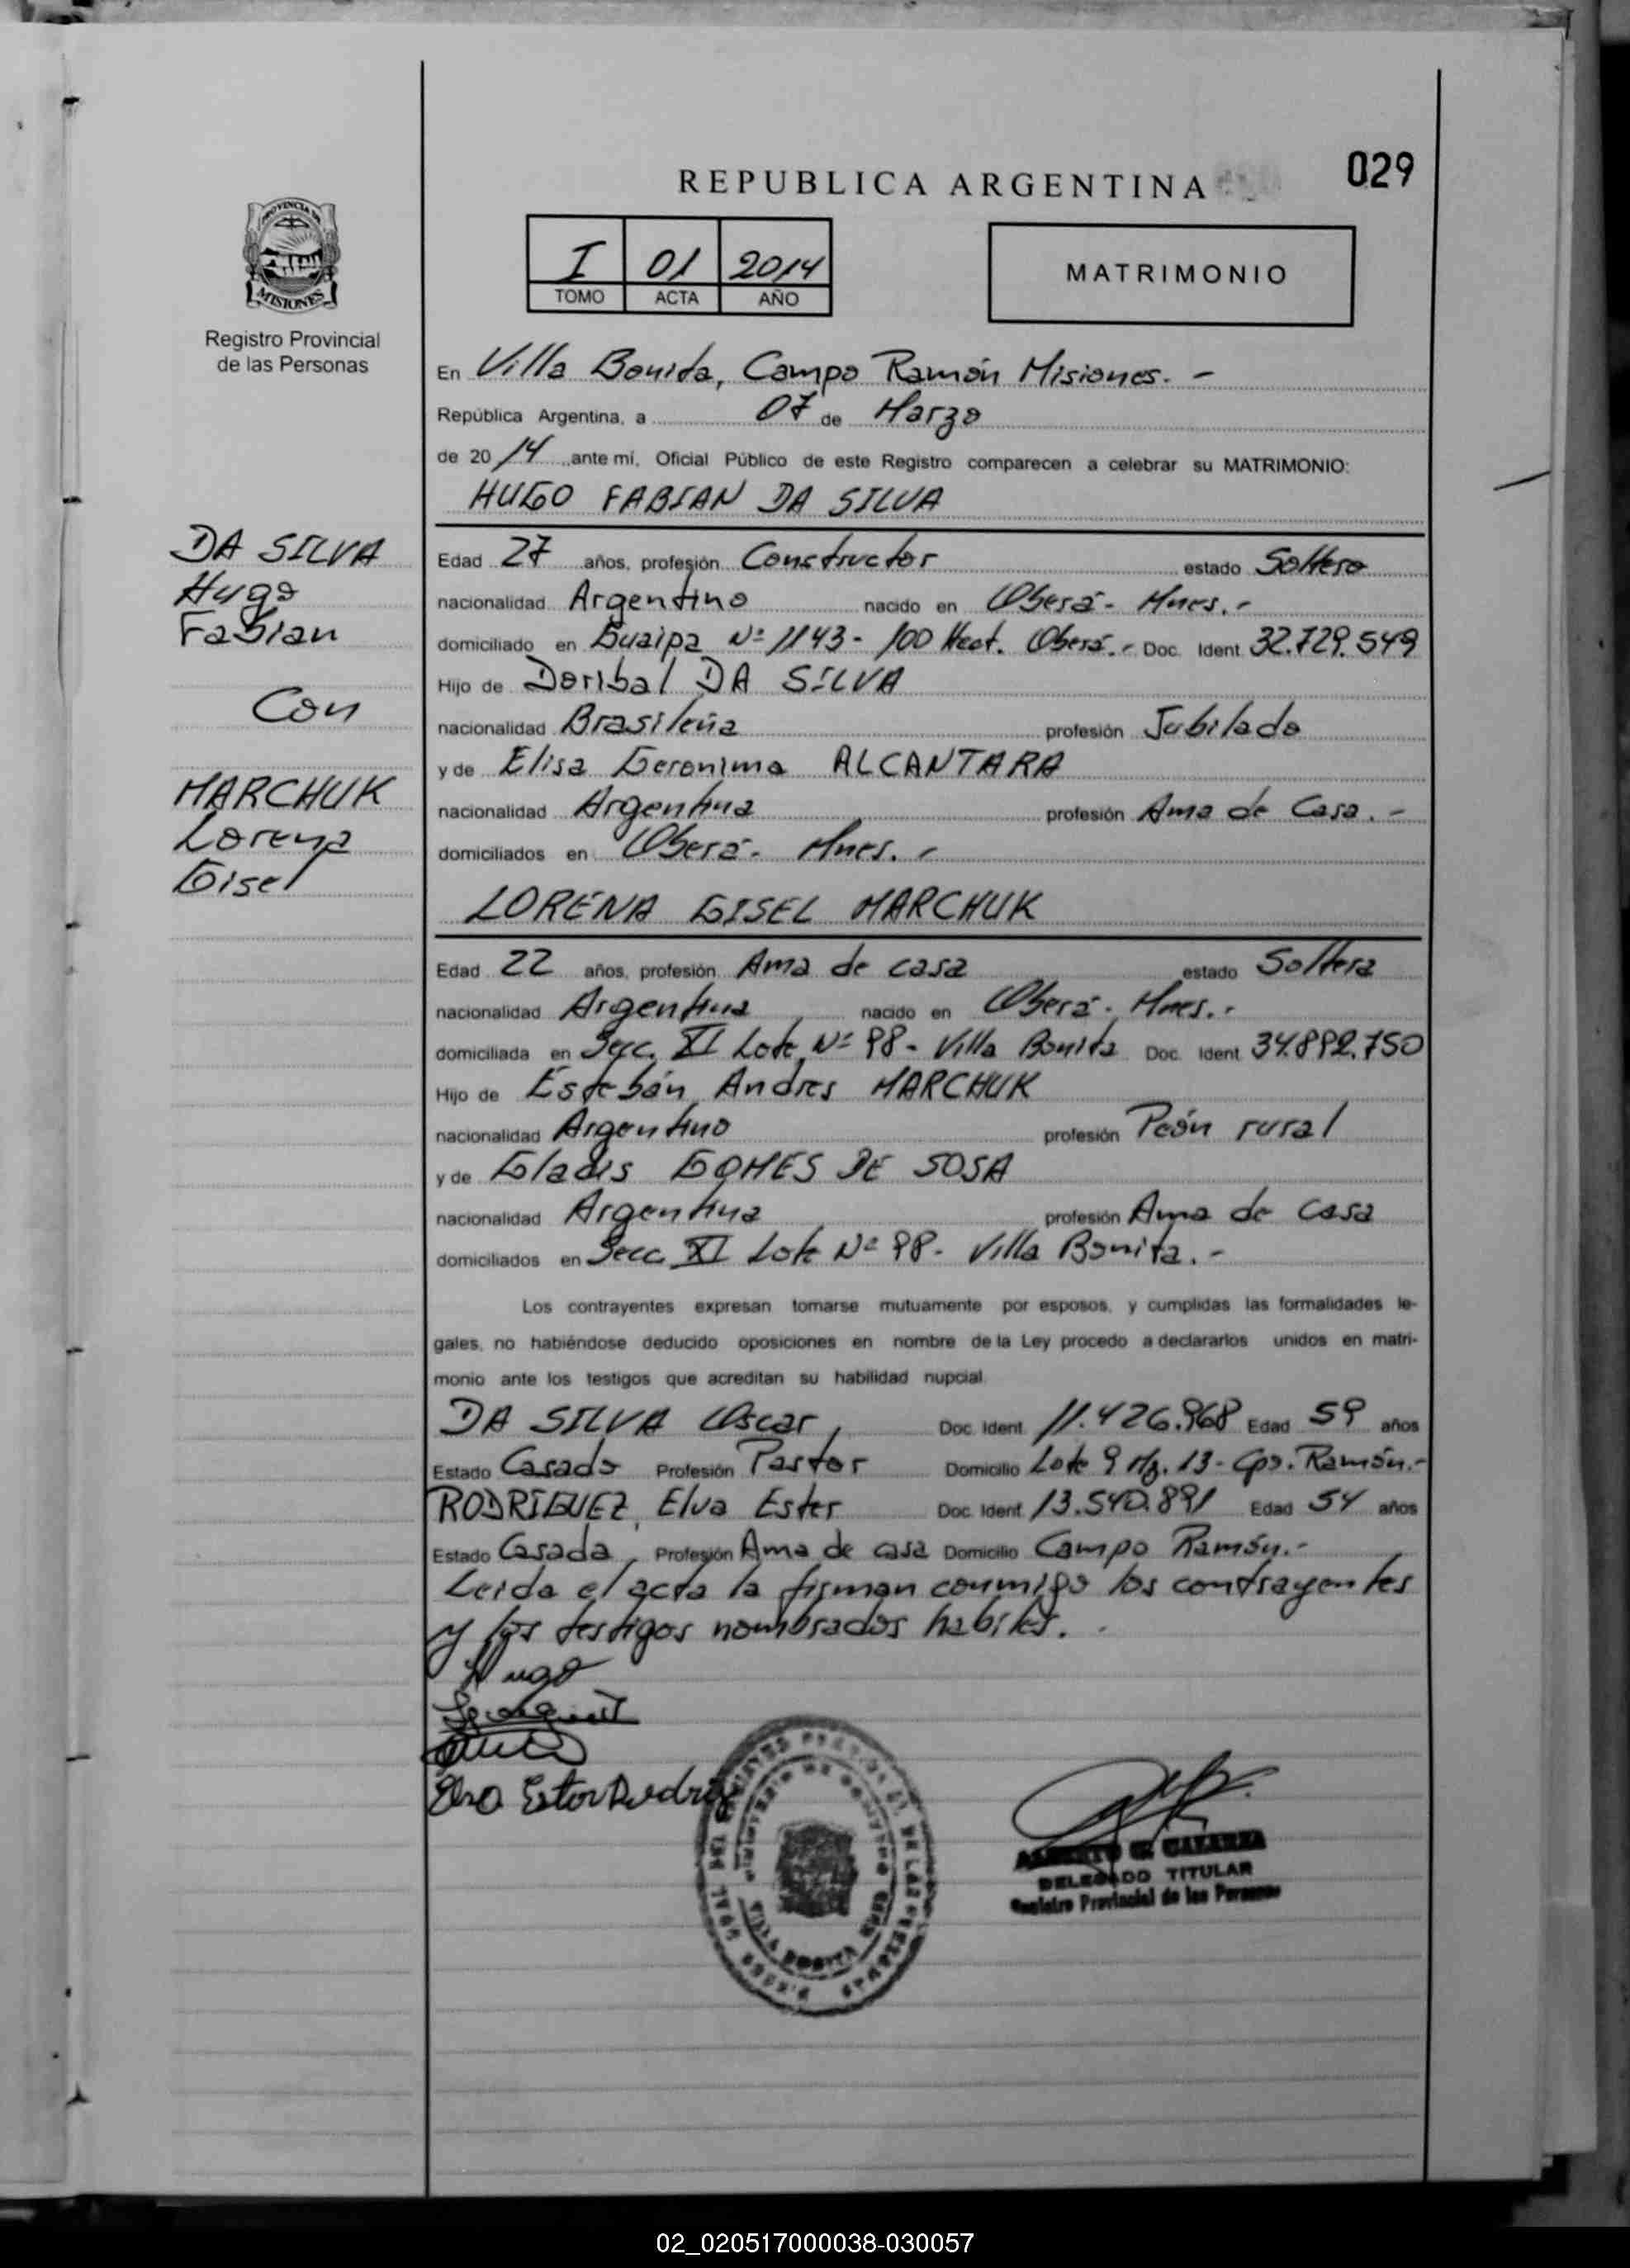 029
REPUBLICA ARGENTINA
I 01 2014
TOMO ACTA AÑO
MATRIMONIO
PROVINCIA DE
MISIONES
Registro Provincial
de las Personas
DA SILVA
Hugo
Fabian
Con
MARCHUK
Lorena
Gisel
En Villa Bonita, Campo Ramón Misiones. -
República Argentina, a 07 de Marzo
de 20 14 ante mí, Oficial Público de este Registro comparecen a celebrar su MATRIMONIO:
HUGO FABIAN DA SILVA
Edad 27 años, profesión Constructor estado Soltero
nacionalidad Argentino nacido en Oberá - Mnes. -
domiciliado en Guaipa Nº 1143 - 100 Hect. Oberá. - Doc. Ident 32.729.549
Hijo de Doribal DA SILVA
nacionalidad Brasileña profesión Jubilado
y de Elisa Geronima ALCANTARA
nacionalidad Argentina profesión Ama de Casa. -
domiciliados en Oberá - Mnes. -
LORENA GISEL MARCHUK
Edad 22 años, profesión Ama de casa estado Soltera
nacionalidad Argentina nacido en Oberá - Mnes. -
domiciliada en Secc. XI Lote Nº 98 - Villa Bonita Doc. Ident 34.892.750
Hijo de Estebán Andres MARCHUK
nacionalidad Argentino profesión Peón rural
y de Gladis GOMES DE SOSA
nacionalidad Argentina profesión Ama de casa
domiciliados en Secc. XI Lote Nº 98 - Villa Bonita. -
Los contrayentes expresan tomarse mutuamente por esposos, y cumplidas las formalidades le-
gales, no habiéndose deducido oposiciones en nombre de la Ley procedo a declararlos unidos en matri-
monio ante los testigos que acreditan su habilidad nupcial.
DA SILVA Oscar, Doc. Ident. 11.426.968 Edad 59 años
Estado Casado Profesión Pastor Domicilio Lote 9 Mz. 13 - Cpo. Ramón. -
RODRIGUEZ, Elva Ester Doc. Ident. 13.540.891 Edad 54 años
Estado Casada, Profesión Ama de casa Domicilio Campo Ramón. -
Leida el acta la firman conmigo los contrayentes
y los testigos nombrados habiles. -
Hugo
VILLA BONITA
DELEGADO TITULAR
Registro Provincial de las Personas
02_020517000038-030057